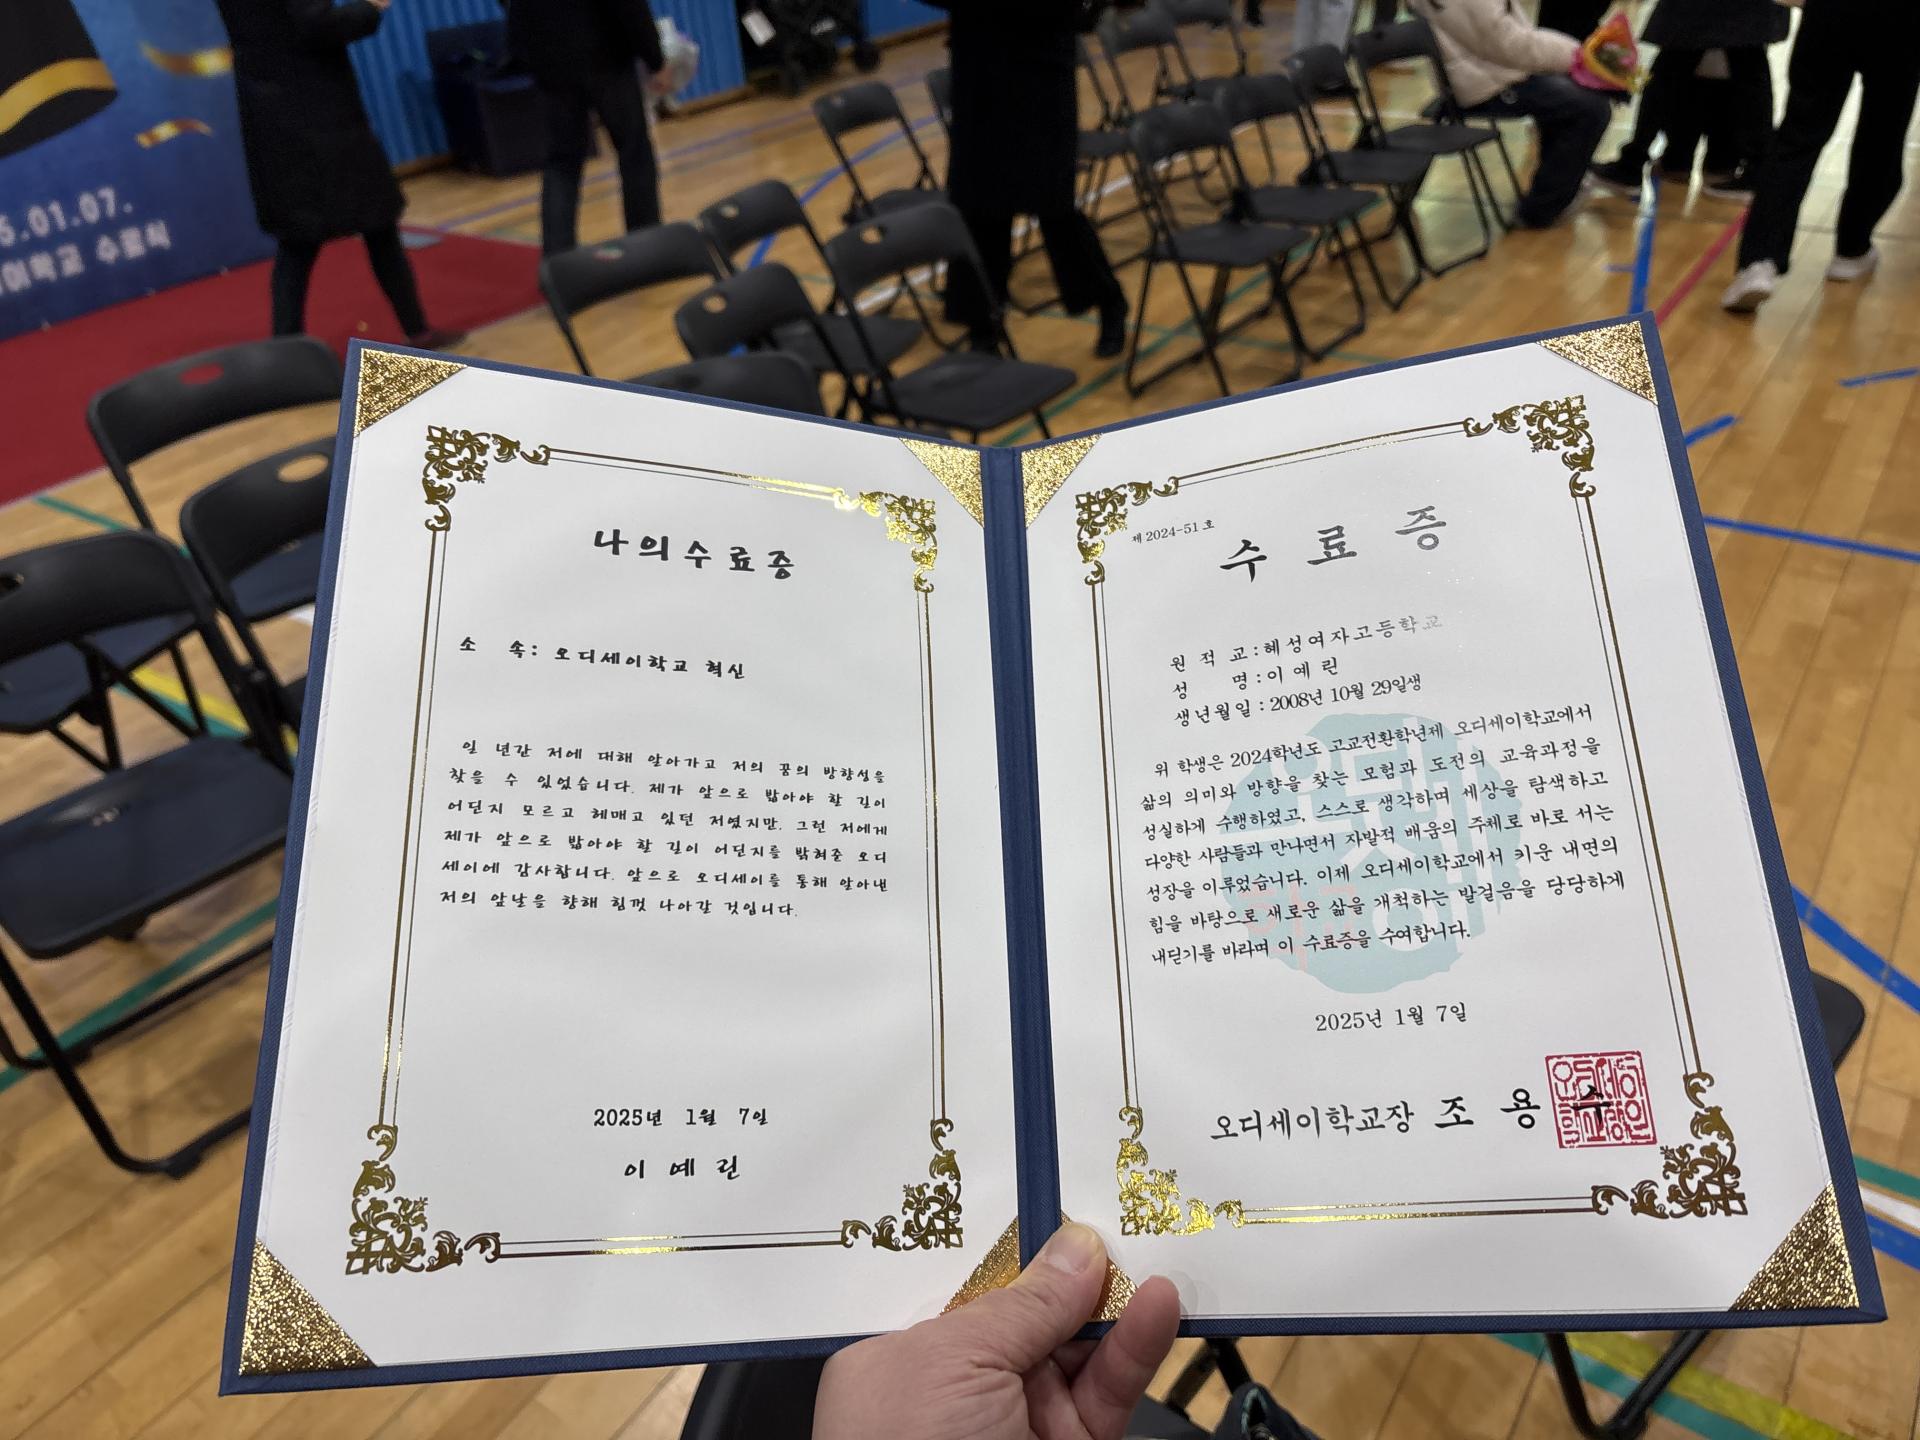 5.01.07.
이학교 수료식
나의수료증
소 속: 오디세이학교 혁신
일 년간 저에 대해 알아가고 저의 꿈의 방향성을
찾을 수 있었습니다. 제가 앞으로 밟아야 할 길이
어딘지 모르고 헤매고 있던 저였지만, 그런 저에게
제가 앞으로 밟아야 할 길이 어딘지를 밝혀준 오디
세이에 감사합니다. 앞으로 오디세이를 통해 알아낸
저의 앞날을 향해 힘껏 나아갈 것입니다.
2025년 1월 7일
이 예 린
제 2024-51 호
수 료 증
원 적 교 : 혜성여자고등학교
성 명 : 이 예 린
생년월일 : 2008년 10월 29일생
위 학생은 2024학년도 고교전환학년제 오디세이학교에서
삶의 의미와 방향을 찾는 모험과 도전의 교육과정을
성실하게 수행하였고, 스스로 생각하며 세상을 탐색하고
다양한 사람들과 만나면서 자발적 배움의 주체로 바로 서는
성장을 이루었습니다. 이제 오디세이학교에서 키운 내면의
힘을 바탕으로 새로운 삶을 개척하는 발걸음을 당당하게
내딛기를 바라며 이 수료증을 수여합니다.
2025년 1월 7일
오디세이학교장 조 용 수